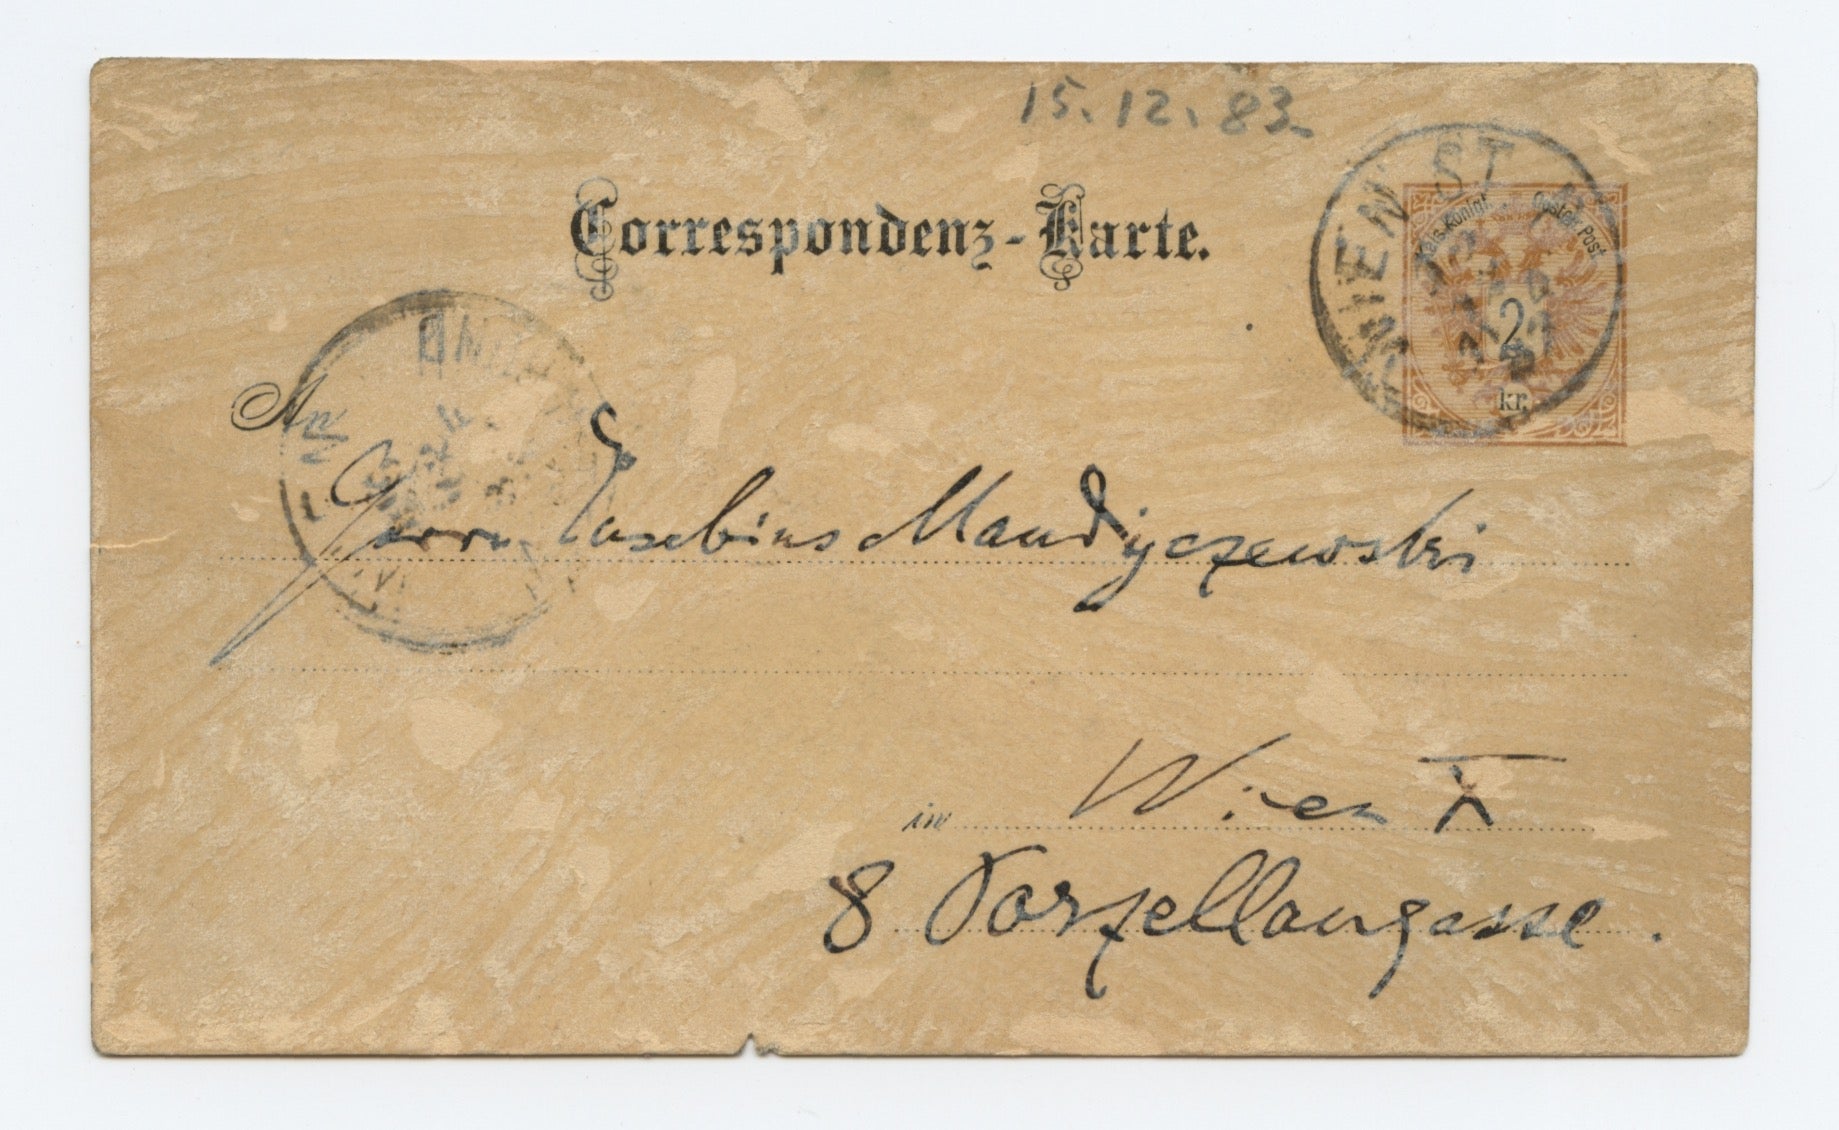 15.12.83
Correspondenz-Karte.
WIEN ST
Kais. Königl. Oesterr. Post
2
kr.
An
Herrn Eusebius Mandyczewski
in Wien IX
8 Porzellangasse.